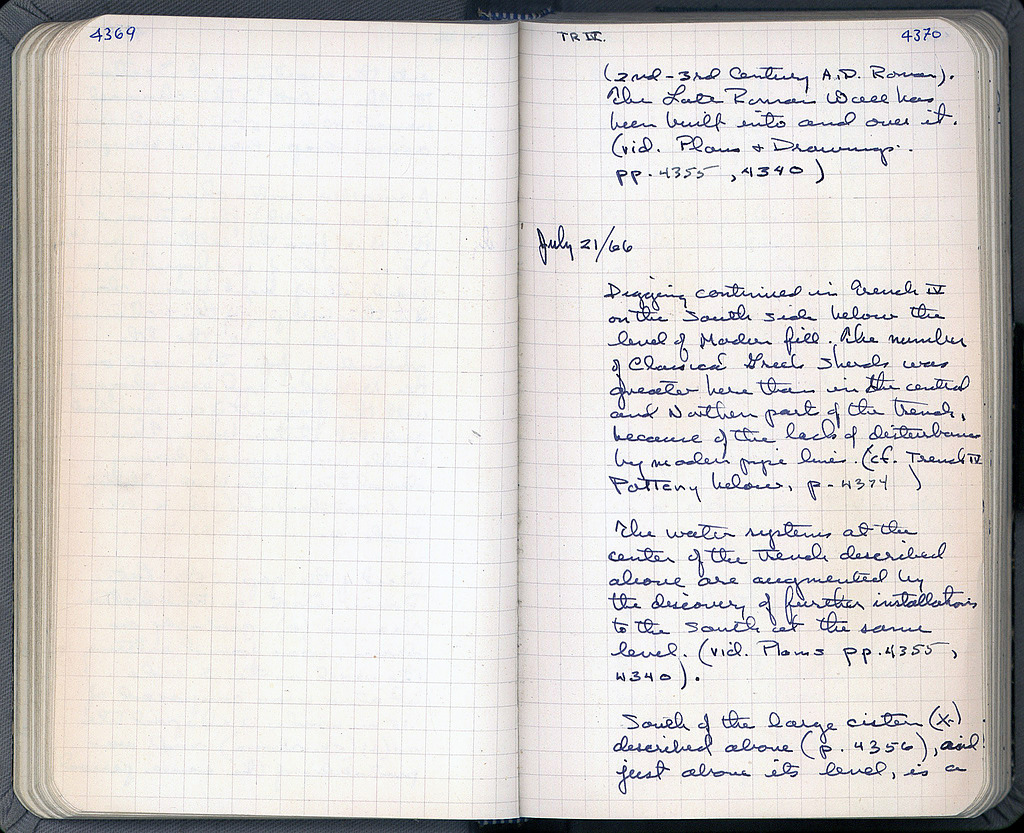 4369
TR IV.
4370
(2nd-3rd Century A.D. Roman).
The Late Roman Wall has
been built into and over it.
(vid. Plans + Drawings.
pp. 4355, 4340)
July 21/66
Digging continued in Trench IV
on the South side below the
level of Modern fill. The number
of Classical Greek Sherds was
greater here than in the central
and Northern part of the trench,
because of the lack of disturbance
by modern pipe lines. (cf. Trench IV
Pottery below, p. 4374)
The water systems at the
center of the trench described
above are augmented by
the discovery of further installations
to the South at the same
level. (vid. Plans pp. 4355,
4340).
South of the large cistern (X)
described above (p. 4356), and
just above its level, is a